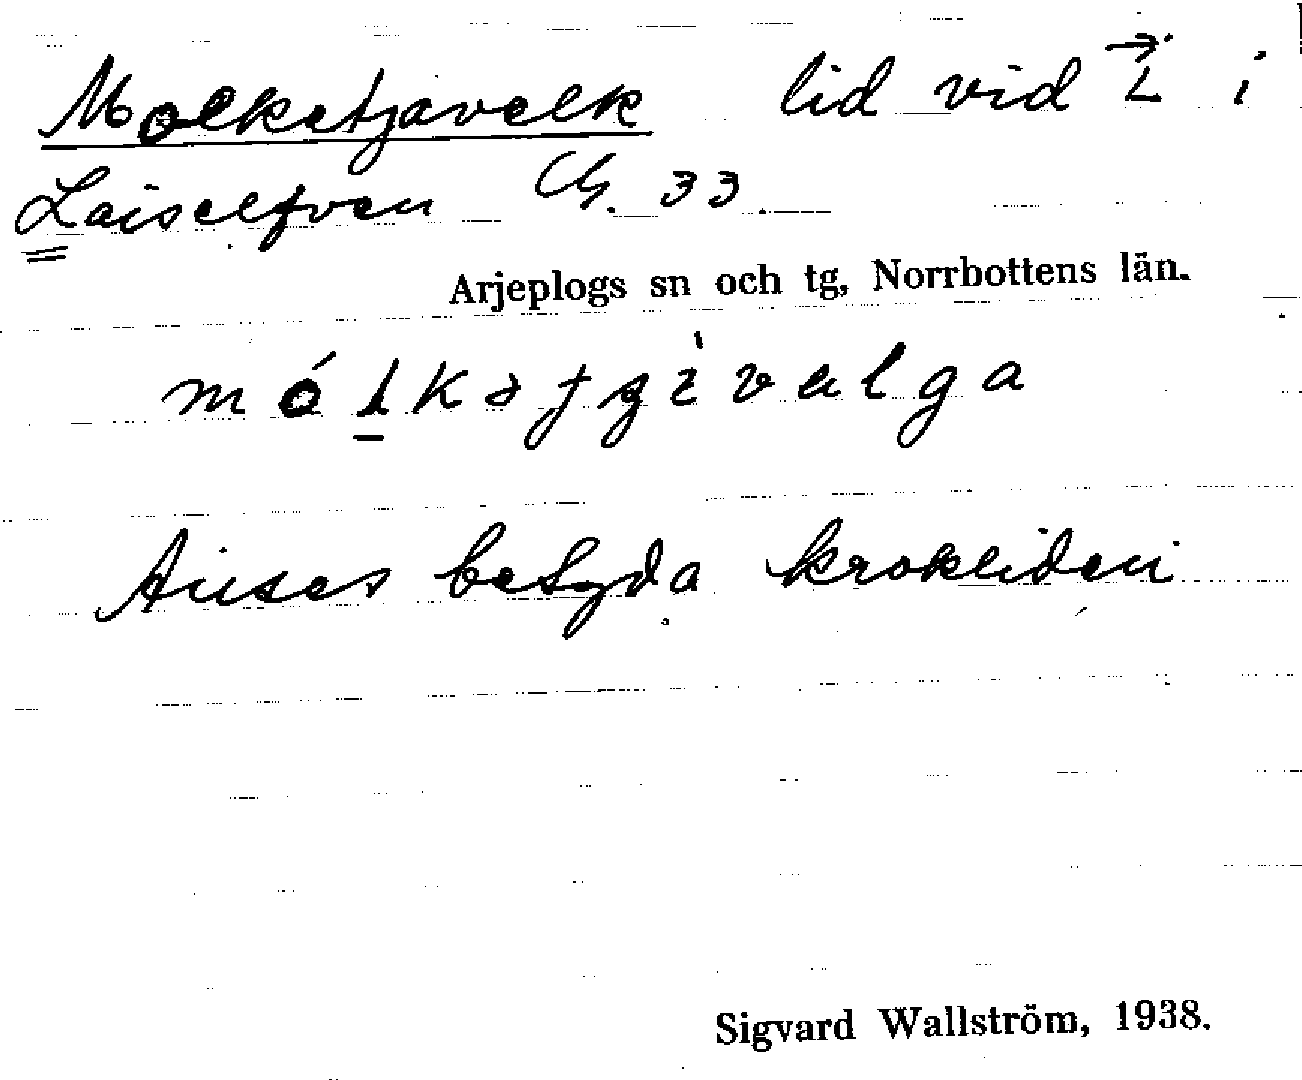 Molketjavelk lid vid L i
Laiselfven Ch. 33.
Arjeplogs sn och tg, Norrbottens län.
Anses betyda krokliden
Sigvard Wallström, 1938.